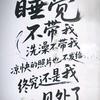 睡觉
不带我
洗澡不带我
凉快的照片也不发给我
终究还是我
见外了